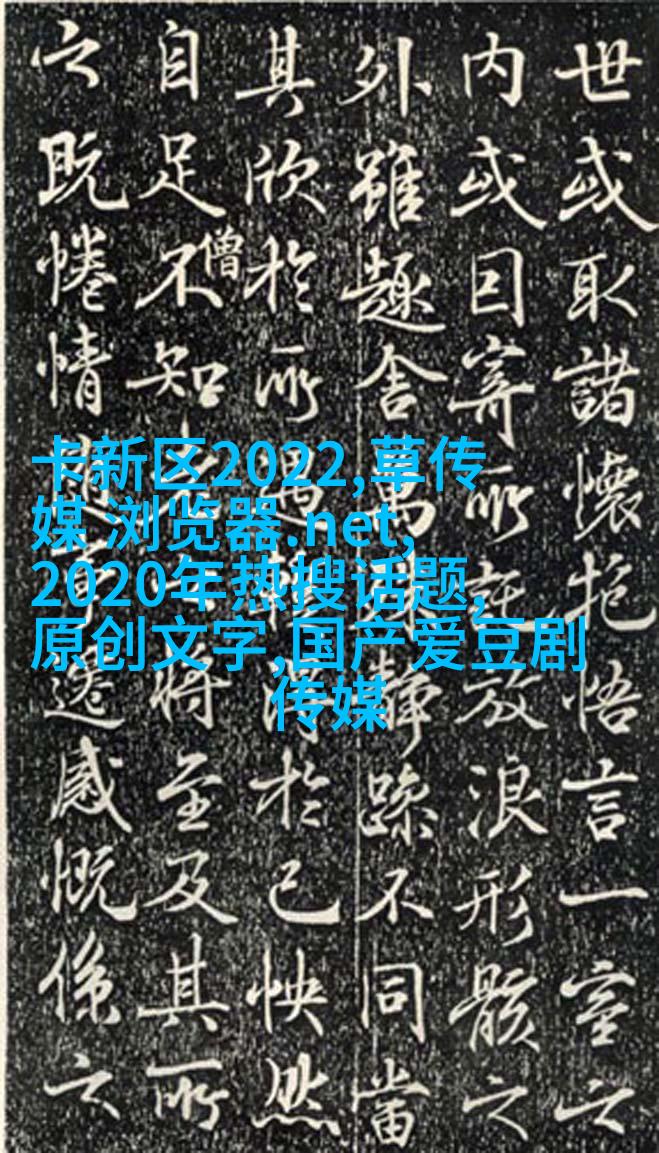 世或取諸懷抱悟言一室之
内或因寄所託放浪形骸之
外雖趣舍萬殊靜躁不同當
其欣於所遇得於己怏然
自足不知將至及其所
僧
之既惓情事遷感慨係之
卡新区2022,草传
媒 浏览器.net,
2020年热搜话题,
原创文字,国产爱豆剧
传媒